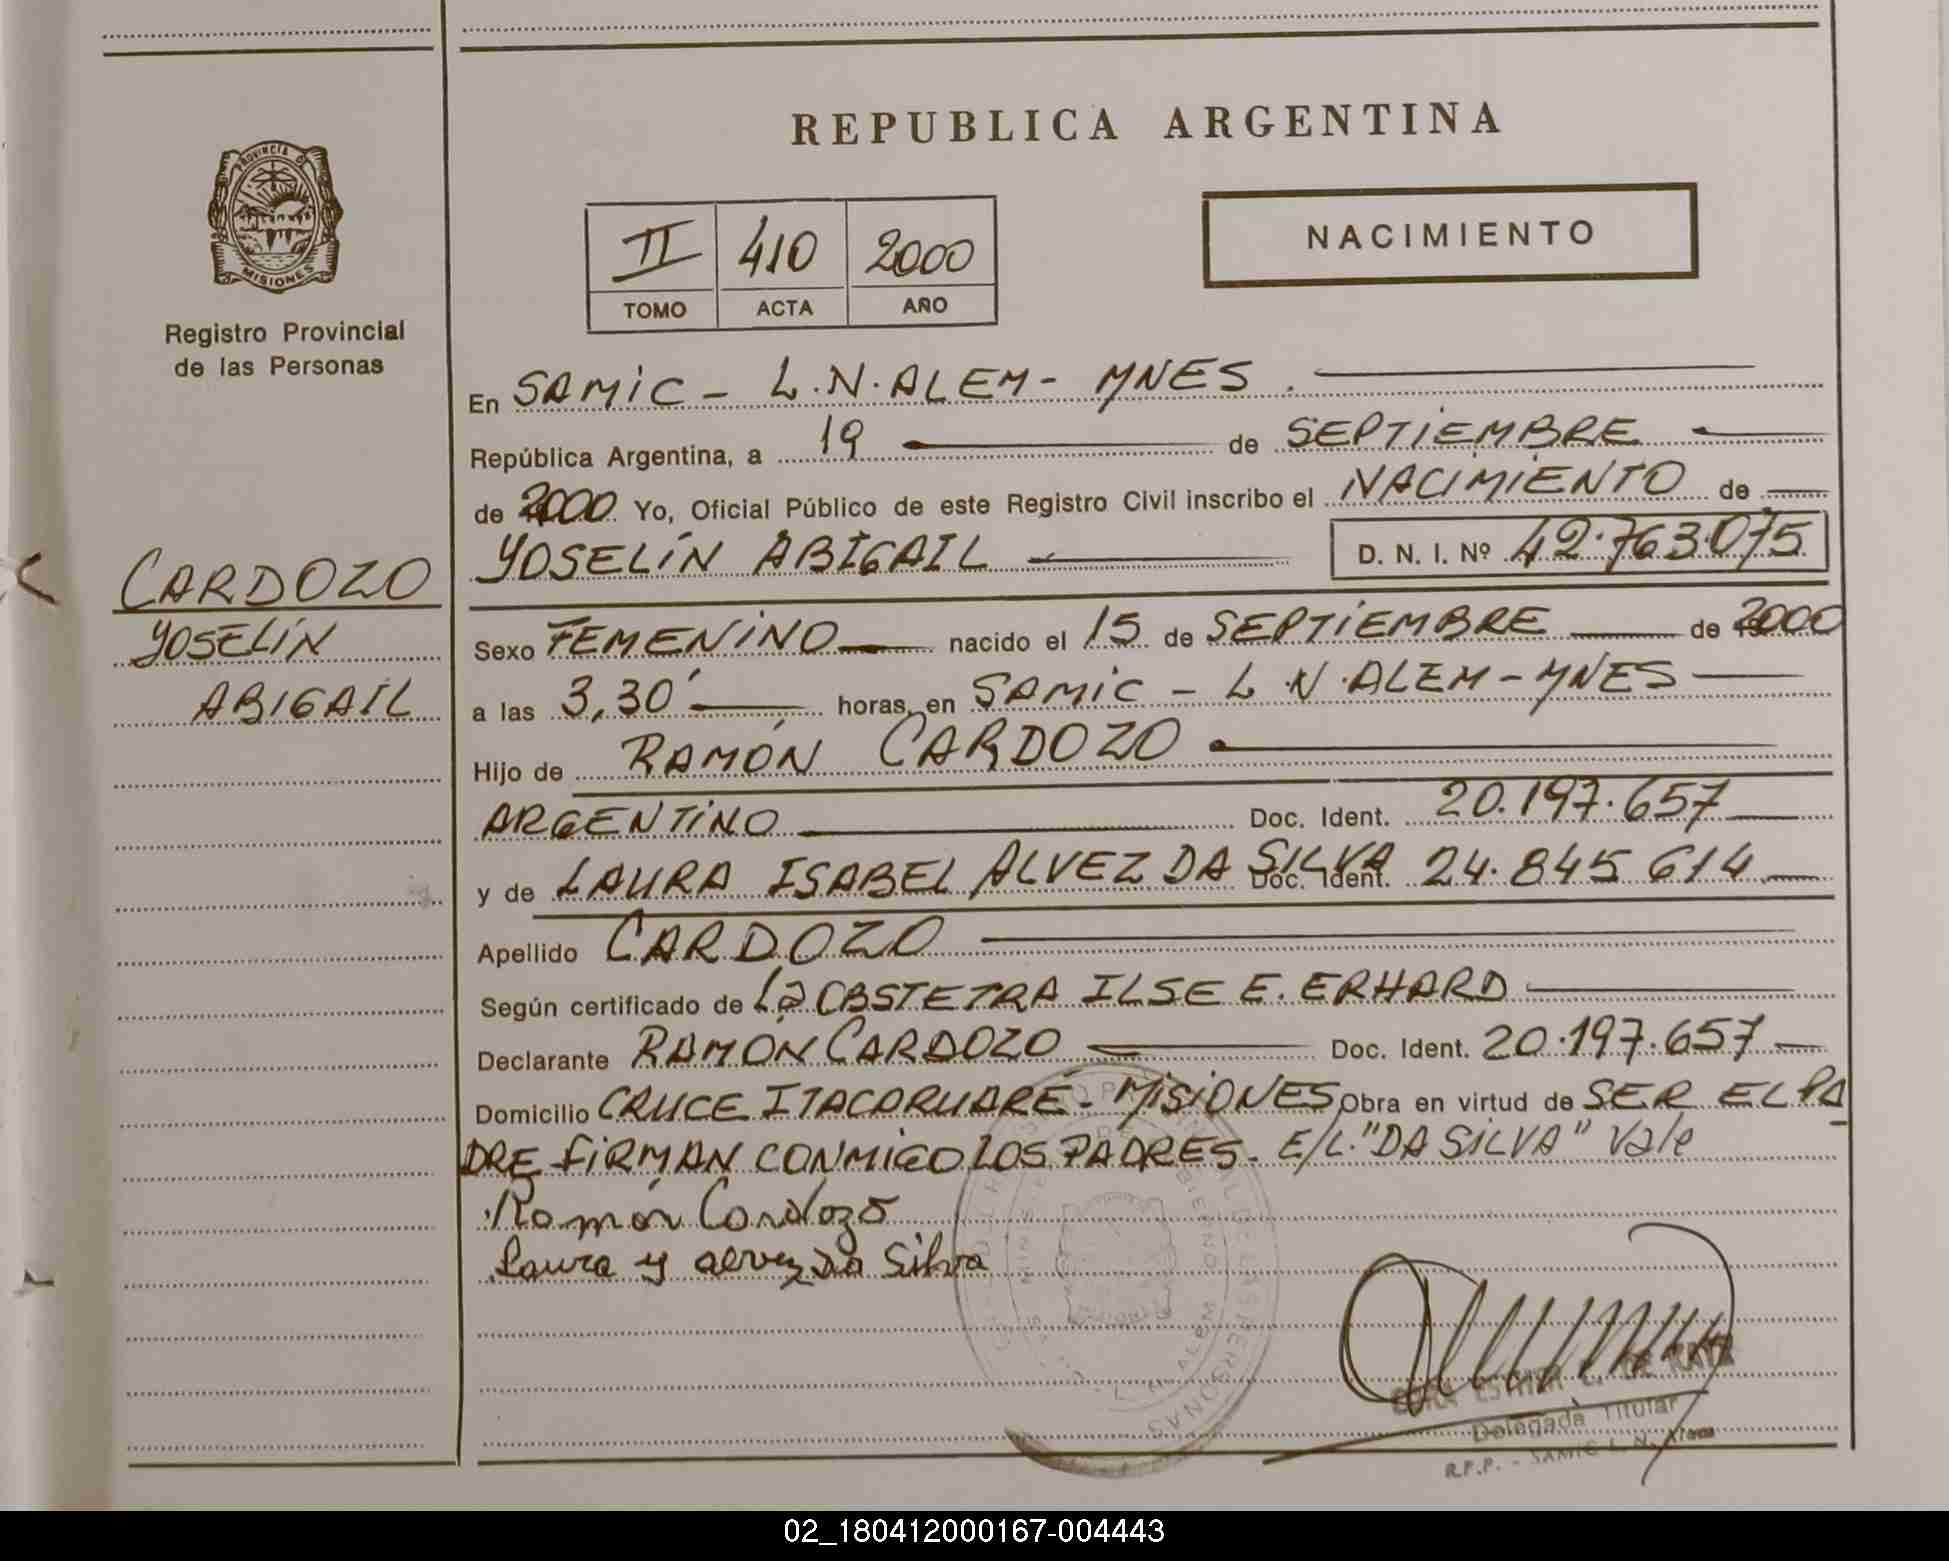 REPUBLICA ARGENTINA
PROVINCIA DE
MISIONES
Registro Provincial
de las Personas
II 410 2000
TOMO ACTA AÑO
NACIMIENTO
CARDOZO
YOSELÍN
ABIGAIL
En SAMIC - L.N. ALEM - MNES.
República Argentina, a 19 de SEPTIEMBRE
de 2000 Yo, Oficial Público de este Registro Civil inscribo el NACIMIENTO de
YOSELÍN ABIGAIL D. N. I. Nº 42.763.075
Sexo FEMENINO nacido el 15 de SEPTIEMBRE de 2000
a las 3,30' horas, en SAMIC - L.N. ALEM - MNES
Hijo de RAMÓN CARDOZO
ARGENTINO Doc. Ident. 20.197.657
y de LAURA ISABEL ALVEZ DA SILVA Doc. Ident. 24.845 614
Apellido CARDOZO
Según certificado de La OBSTETRA ILSE E. ERHARD
Declarante RAMÓN CARDOZO Doc. Ident. 20.197.657
Domicilio CRUCE ITACARUARÉ - MISIONES Obra en virtud de SER EL PA
DRE FIRMAN CONMIGO LOS PADRES. E/L. "DA SILVA" Vale
Ramón Cardozo
Laura y alvez Da Silva
Delegada Titular
R.P.P. - SAMIC L. N. Alem
02_180412000167-004443